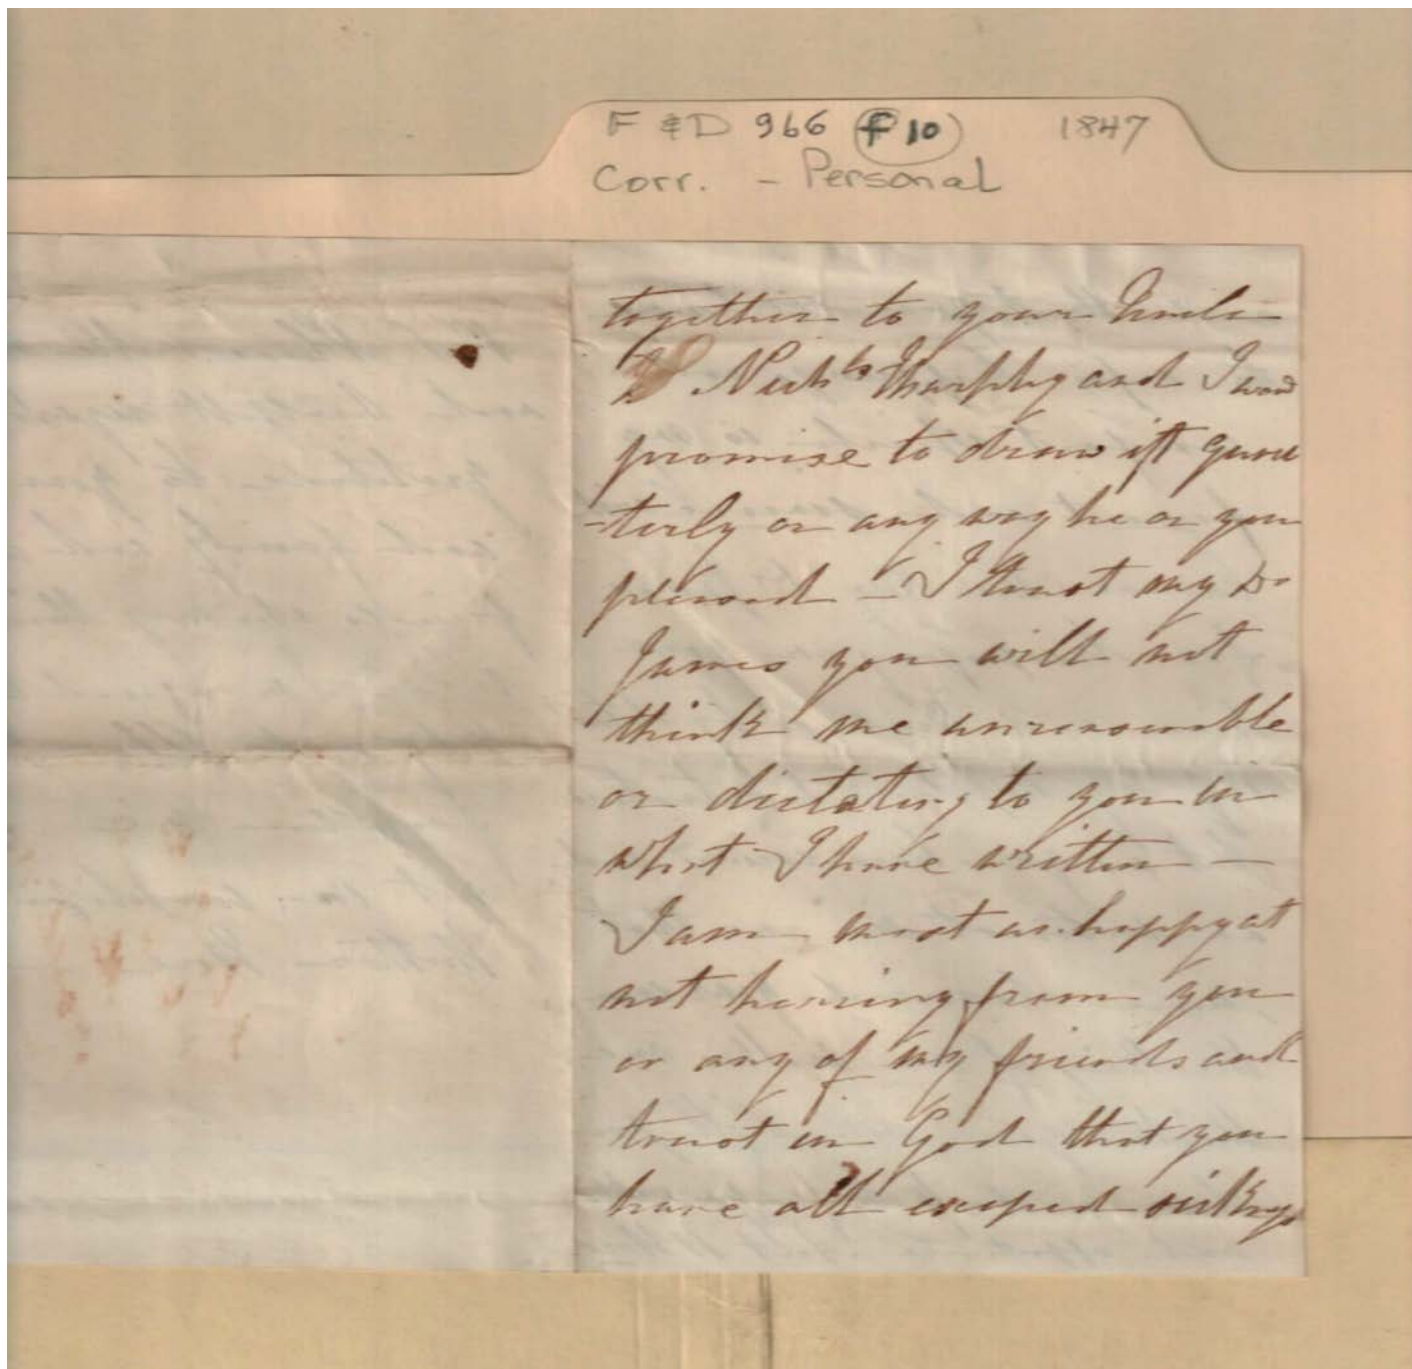 F & D 966 f 10 1847
Corr. - Personal
together to your Uncle
Nichls Murphy and I wod
promise to draw it quar
-terly or any way he or you
pleased - I trust my Dr
James you will not
think me unreasonable
or dictating to you in
what I have written —
I am most unhappy at
not hearing from you
or any of my friends and
trust in God that you
have all escaped